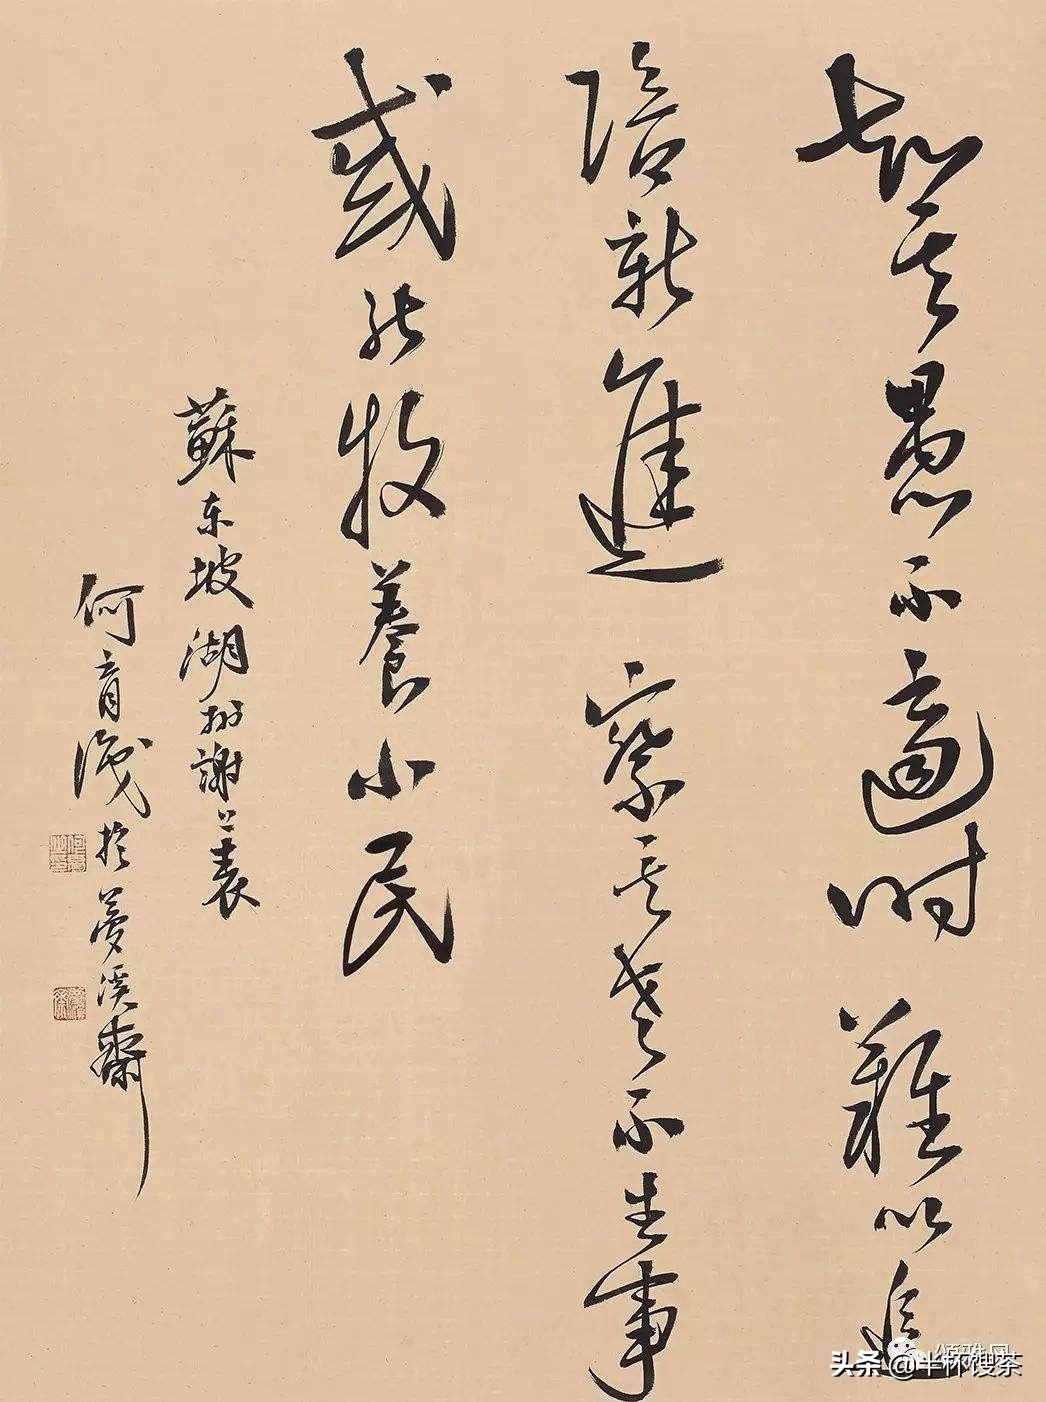 知其愚不適時難以追
陪新進察其老不生事
或能牧養小民
蘇東坡湖州謝上表
何育淺於夢溪齋
頌雅风
头条@半杯馊茶